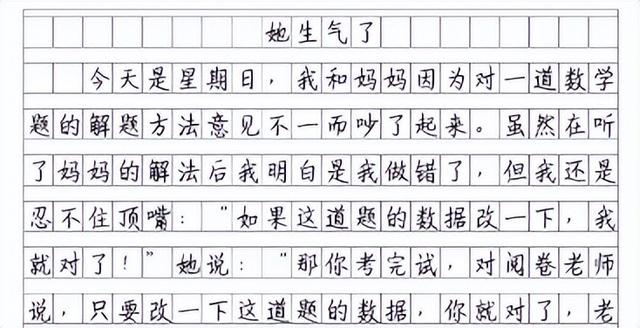 她生气了
今天是星期日，我和妈妈因为对一道数学
题的解题方法意见不一而吵了起来。虽然在听
了妈妈的解法后我明白是我做错了，但我还是
忍不住顶嘴：“如果这道题的数据改一下，我
就对了！”她说：“那你考完试，对阅卷老师
说，只要改一下这道题的数据，你就对了，老